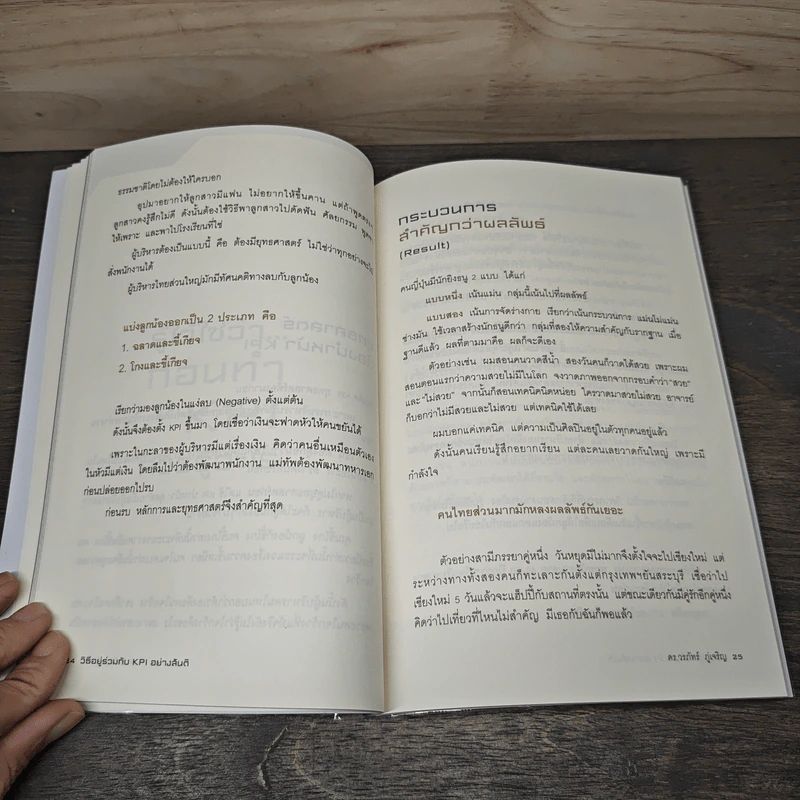 ธรรมชาติโดยไม่ต้องให้ใครบอก
อุปมาอยากให้ลูกสาวมีแฟน ไม่อยากให้ขึ้นคาน แต่ถ้าพูดตรงๆ
ลูกสาวคงรู้สึกไม่ดี ดังนั้นต้องใช้วิธีพาลูกสาวไปดัดฟัน ศัลยกรรม พูดจา
ให้เพราะ และพาไปโรงเรียนที่ใช่
ผู้บริหารต้องเป็นแบบนี้ คือ ต้องมียุทธศาสตร์ ไม่ใช่ว่าทุกอย่างจะไป
สั่งพนักงานได้
ผู้บริหารไทยส่วนใหญ่มักมีทัศนคติทางลบกับลูกน้อง
แบ่งลูกน้องออกเป็น 2 ประเภท คือ
1. ฉลาดและขี้เกียจ
2. โกงและขี้เกียจ
เรียกว่ามองลูกน้องในแง่ลบ (Negative) ตั้งแต่ต้น
ดังนั้นจึงต้องตั้ง KPI ขึ้นมา โดยเชื่อว่าเงินจะฟาดหัวให้คนขยันได้
เพราะในกะลาของผู้บริหารมีแต่เรื่องเงิน คิดว่าคนอื่นเหมือนตัวเอง
ในหัวมีแต่เงิน โดยลืมไปว่าต้องพัฒนาพนักงาน แม่ทัพต้องพัฒนาทหารเอก
ก่อนปล่อยออกไปรบ
ก่อนรบ หลักการและยุทธศาสตร์จึงสำคัญที่สุด
วิธีอยู่ร่วมกับ KPI อย่างสันติ
กระบวนการ
สำคัญกว่าผลลัพธ์
(Result)
คนญี่ปุ่นมีนักยิงธนู 2 แบบ ได้แก่
แบบหนึ่ง เน้นแม่น กลุ่มนี้เน้นไปที่ผลลัพธ์
แบบสอง เน้นการจัดร่างกาย เรียกว่าเน้นกระบวนการ แม่นไม่แม่น
ช่างมัน ใช้เวลาสร้างนักธนูดีกว่า กลุ่มที่สองให้ความสำคัญกับรากฐาน เมื่อ
ฐานดีแล้ว ผลที่ตามมาคือ ผลก็จะดีเอง
ตัวอย่างเช่น ผมสอนคนวาดสีน้ำ สองวันคนก็วาดได้สวย เพราะผม
สอนตอนแรกว่าความสวยไม่มีในโลก จงวาดภาพออกจากกรอบคำว่า "สวย"
และ "ไม่สวย" จากนั้นก็สอนเทคนิคนิดหน่อย ใครวาดมาสวยไม่สวย อาจารย์
ก็บอกว่าไม่มีสวยและไม่สวย แต่เทคนิคใช้ได้เลย
ผมบอกแค่เทคนิค แต่ความเป็นศิลปินอยู่ในตัวทุกคนอยู่แล้ว
ดังนั้นคนเรียนรู้สึกอยากเรียน แต่ละคนเลยวาดกันใหญ่ เพราะมี
กำลังใจ
คนไทยส่วนมากมักหลงผลลัพธ์กันเยอะ
ตัวอย่างสามีภรรยาคู่หนึ่ง วันหยุดมีไม่มากจึงตั้งใจจะไปเชียงใหม่ แต่
ระหว่างทางทั้งสองคนก็ทะเลาะกันตั้งแต่กรุงเทพฯยันสระบุรี เชื่อว่าไป
เชียงใหม่ 5 วันแล้วจะแฮ็ปปี้กับสถานที่ตรงนั้น แต่ขณะเดียวกันมีคู่รักอีกคู่หนึ่ง
คิดว่าไปเที่ยวที่ไหนไม่สำคัญ มีเธอกับฉันก็พอแล้ว
ดร.วรภัทร์ ภู่เจริญ 25